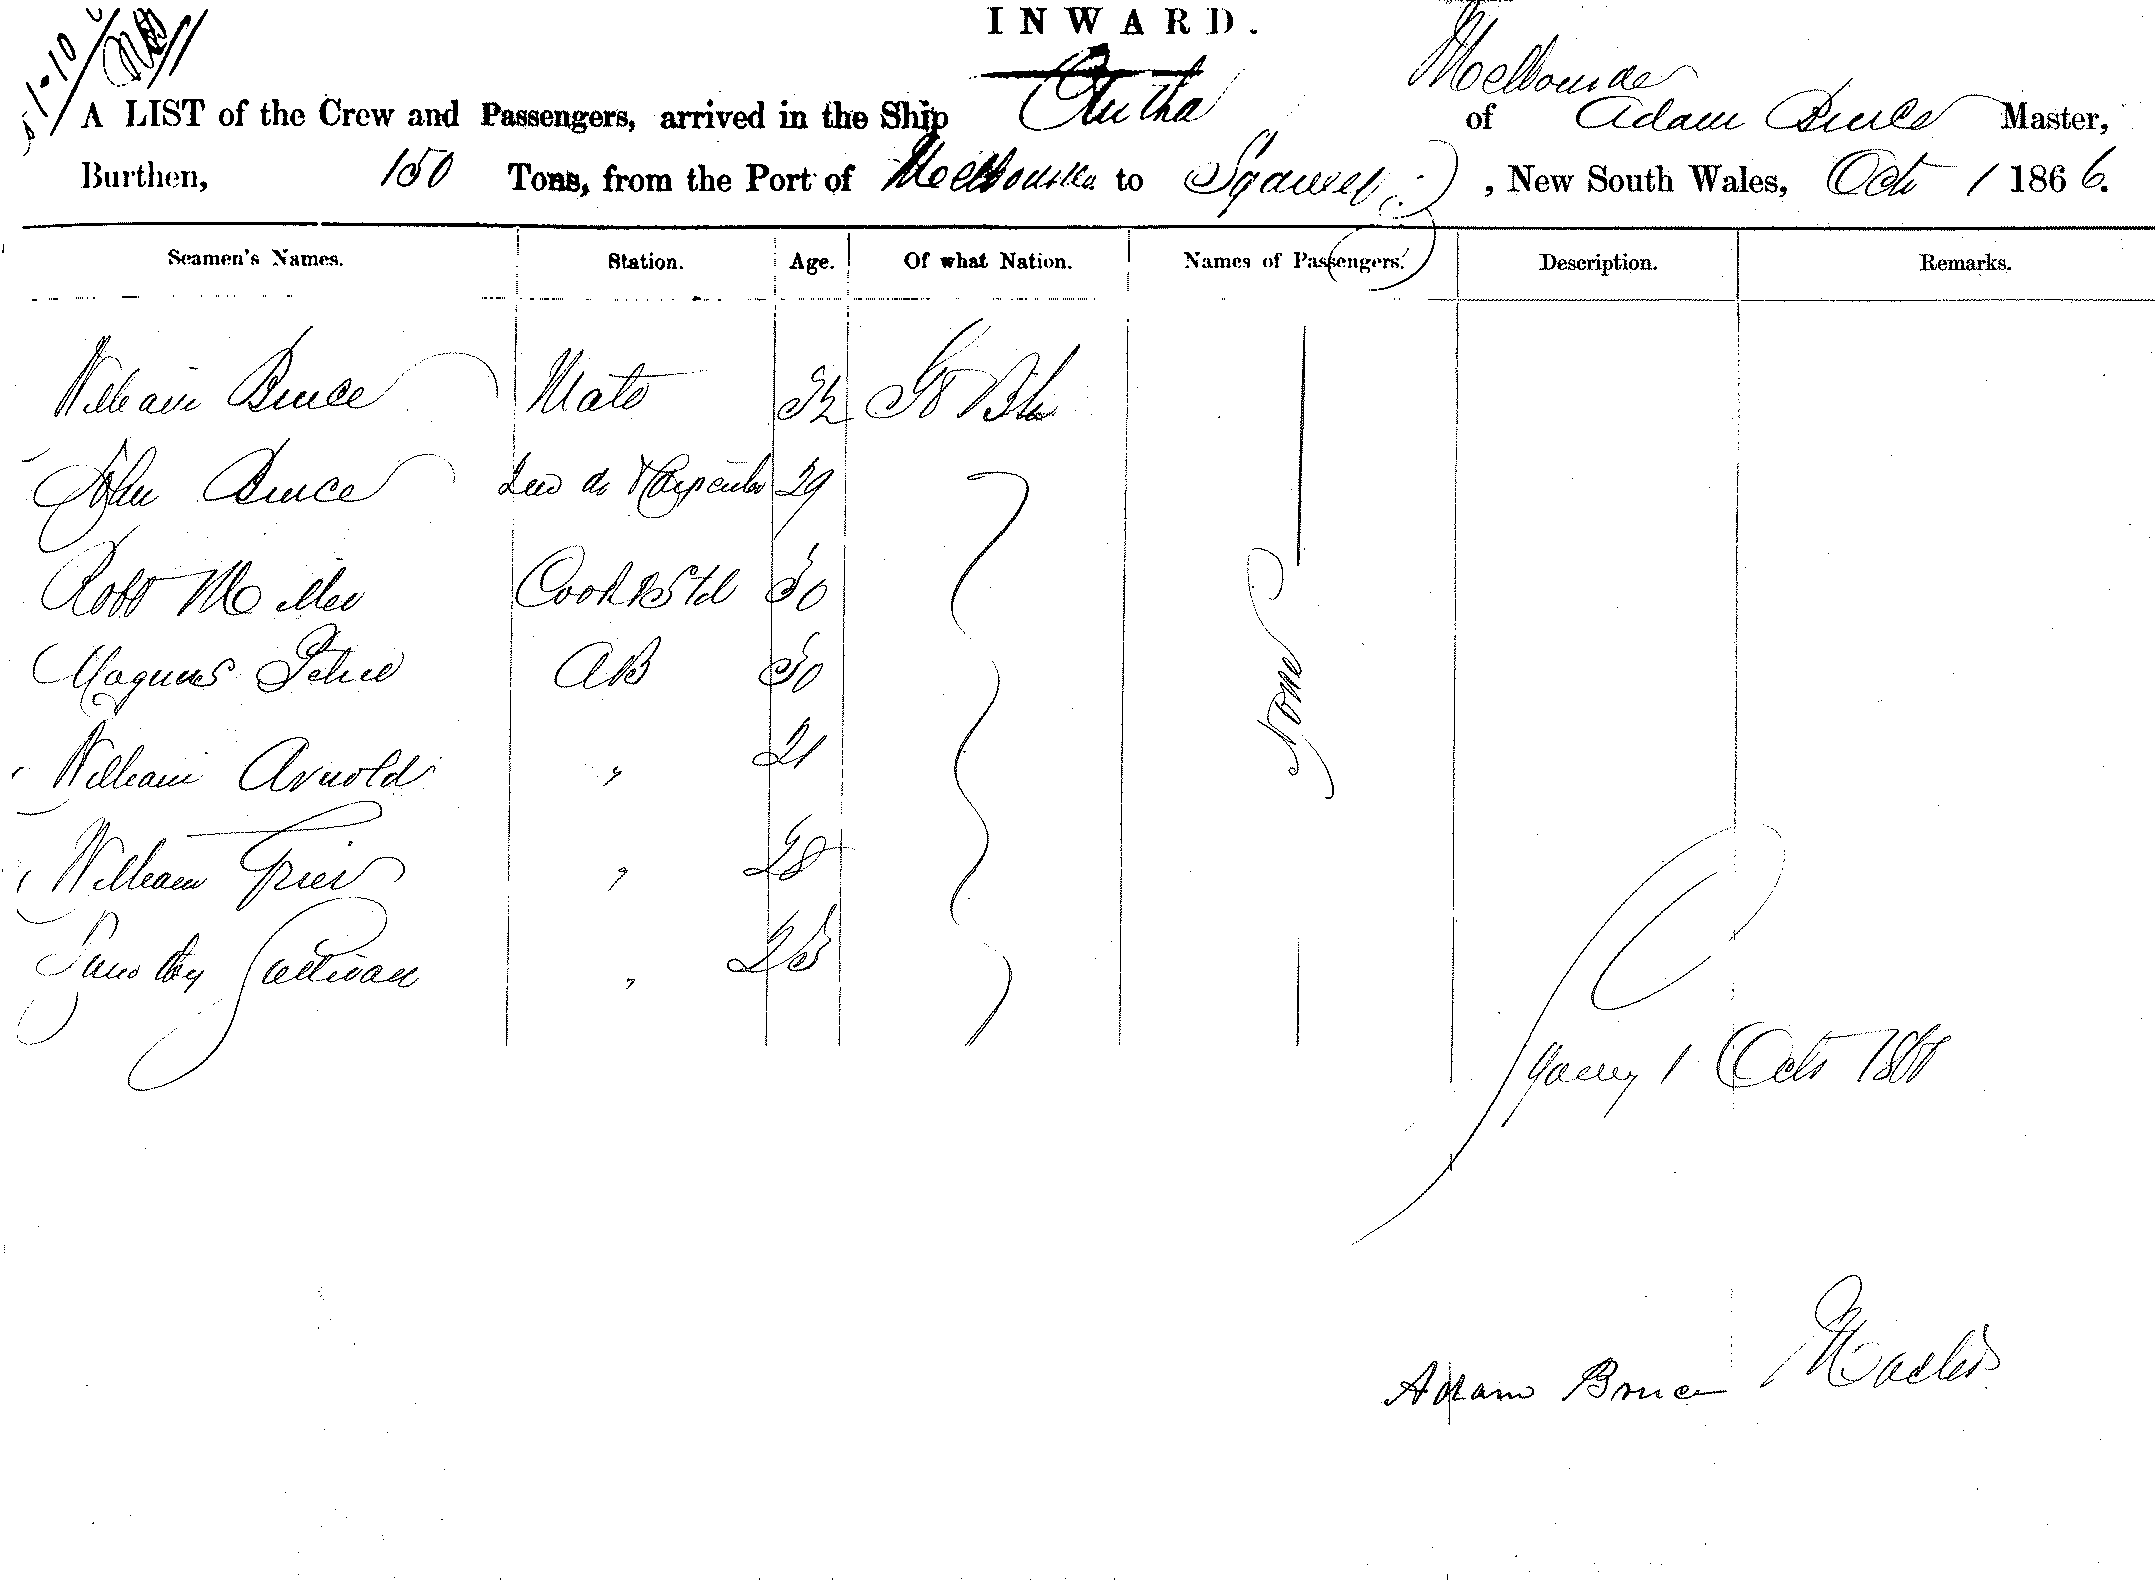 INWARD.
1-10
Melbourne
A LIST of the Crew and Passengers, arrived in the Ship Clutha of Adam Bruce Master,
Burthen, 150 Tons, from the Port of Melbourne to Sydney , New South Wales, Oct 1 1866.
Seamen's Names. Station. Age. Of what Nation. Names of Passengers. Description. Remarks.
William Bruce Mate 32 Gt Btn
John Bruce do & Carpenter 29
Robt Miller Cook & Std 50
Magnus Petrie AB 50
None
William Arnold " 21
William Grier " 28
Timothy Sullivan " 25
Sydney 1 Oct 1866
Adam Bruce Master